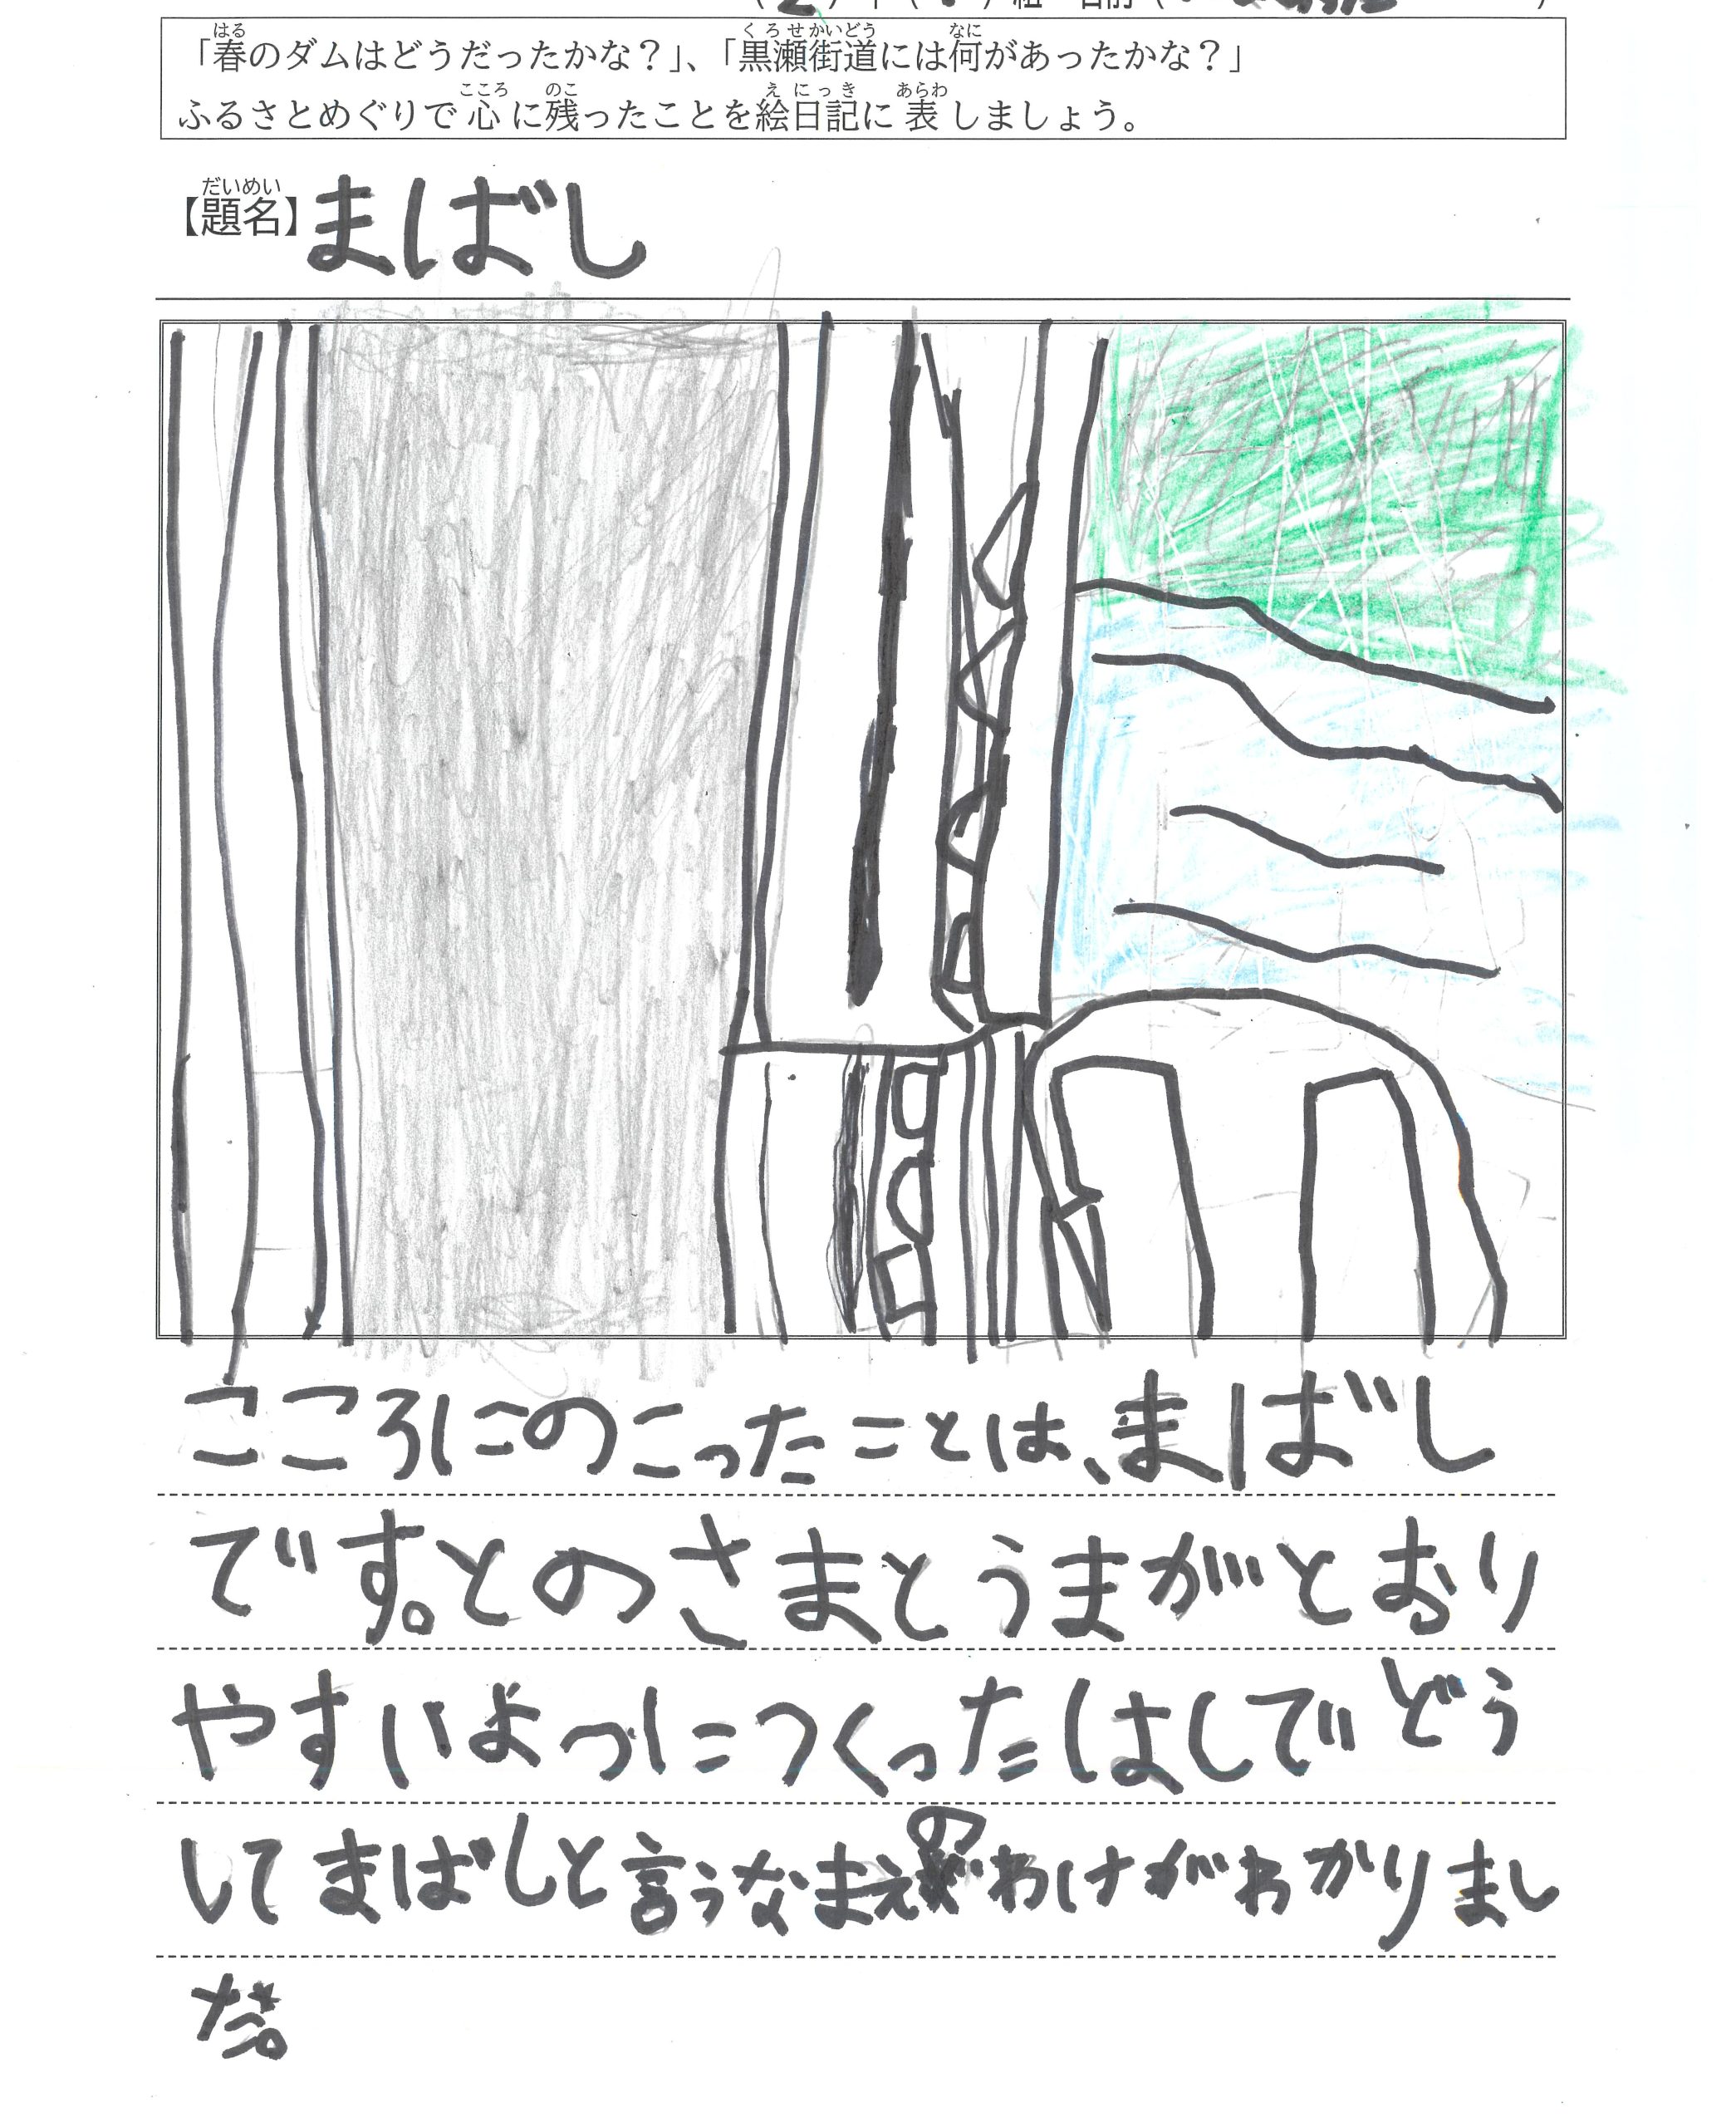 「春のダムはどうだったかな？」、「黒瀬街道には何があったかな？」
ふるさとめぐりで心に残ったことを絵日記に表しましょう。
【題名】まばし
こころにのこったことは、まばし
です。とのさまとうまがとおり
やすいようにつくったはしでどう
してまばしと言うなまえのわけがわかりまし
た。